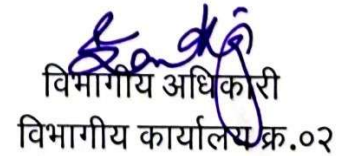 विभागीय अधिकारी
विभागीय कार्यालय क्र.०२